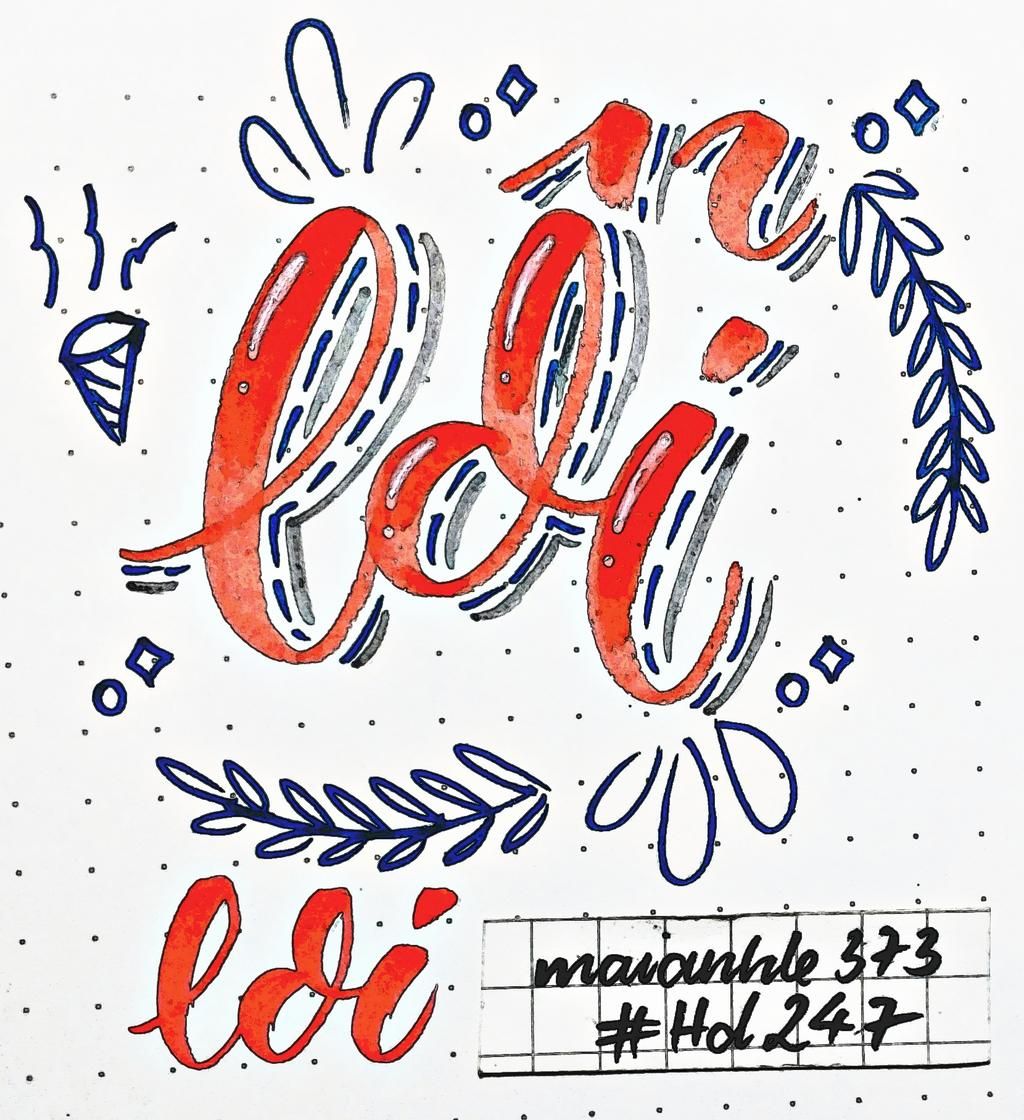 n
ldi
ldi
maianhle 373
#Hd 247